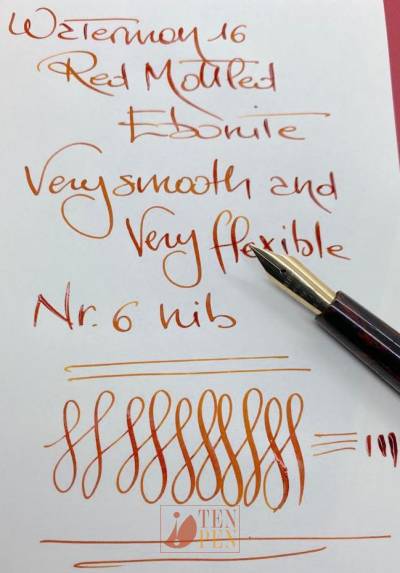 Waterman 16
Red Mottled
Ebonite
Very smooth and
Very flexible
Nr. 6 nib
TEN
PEN